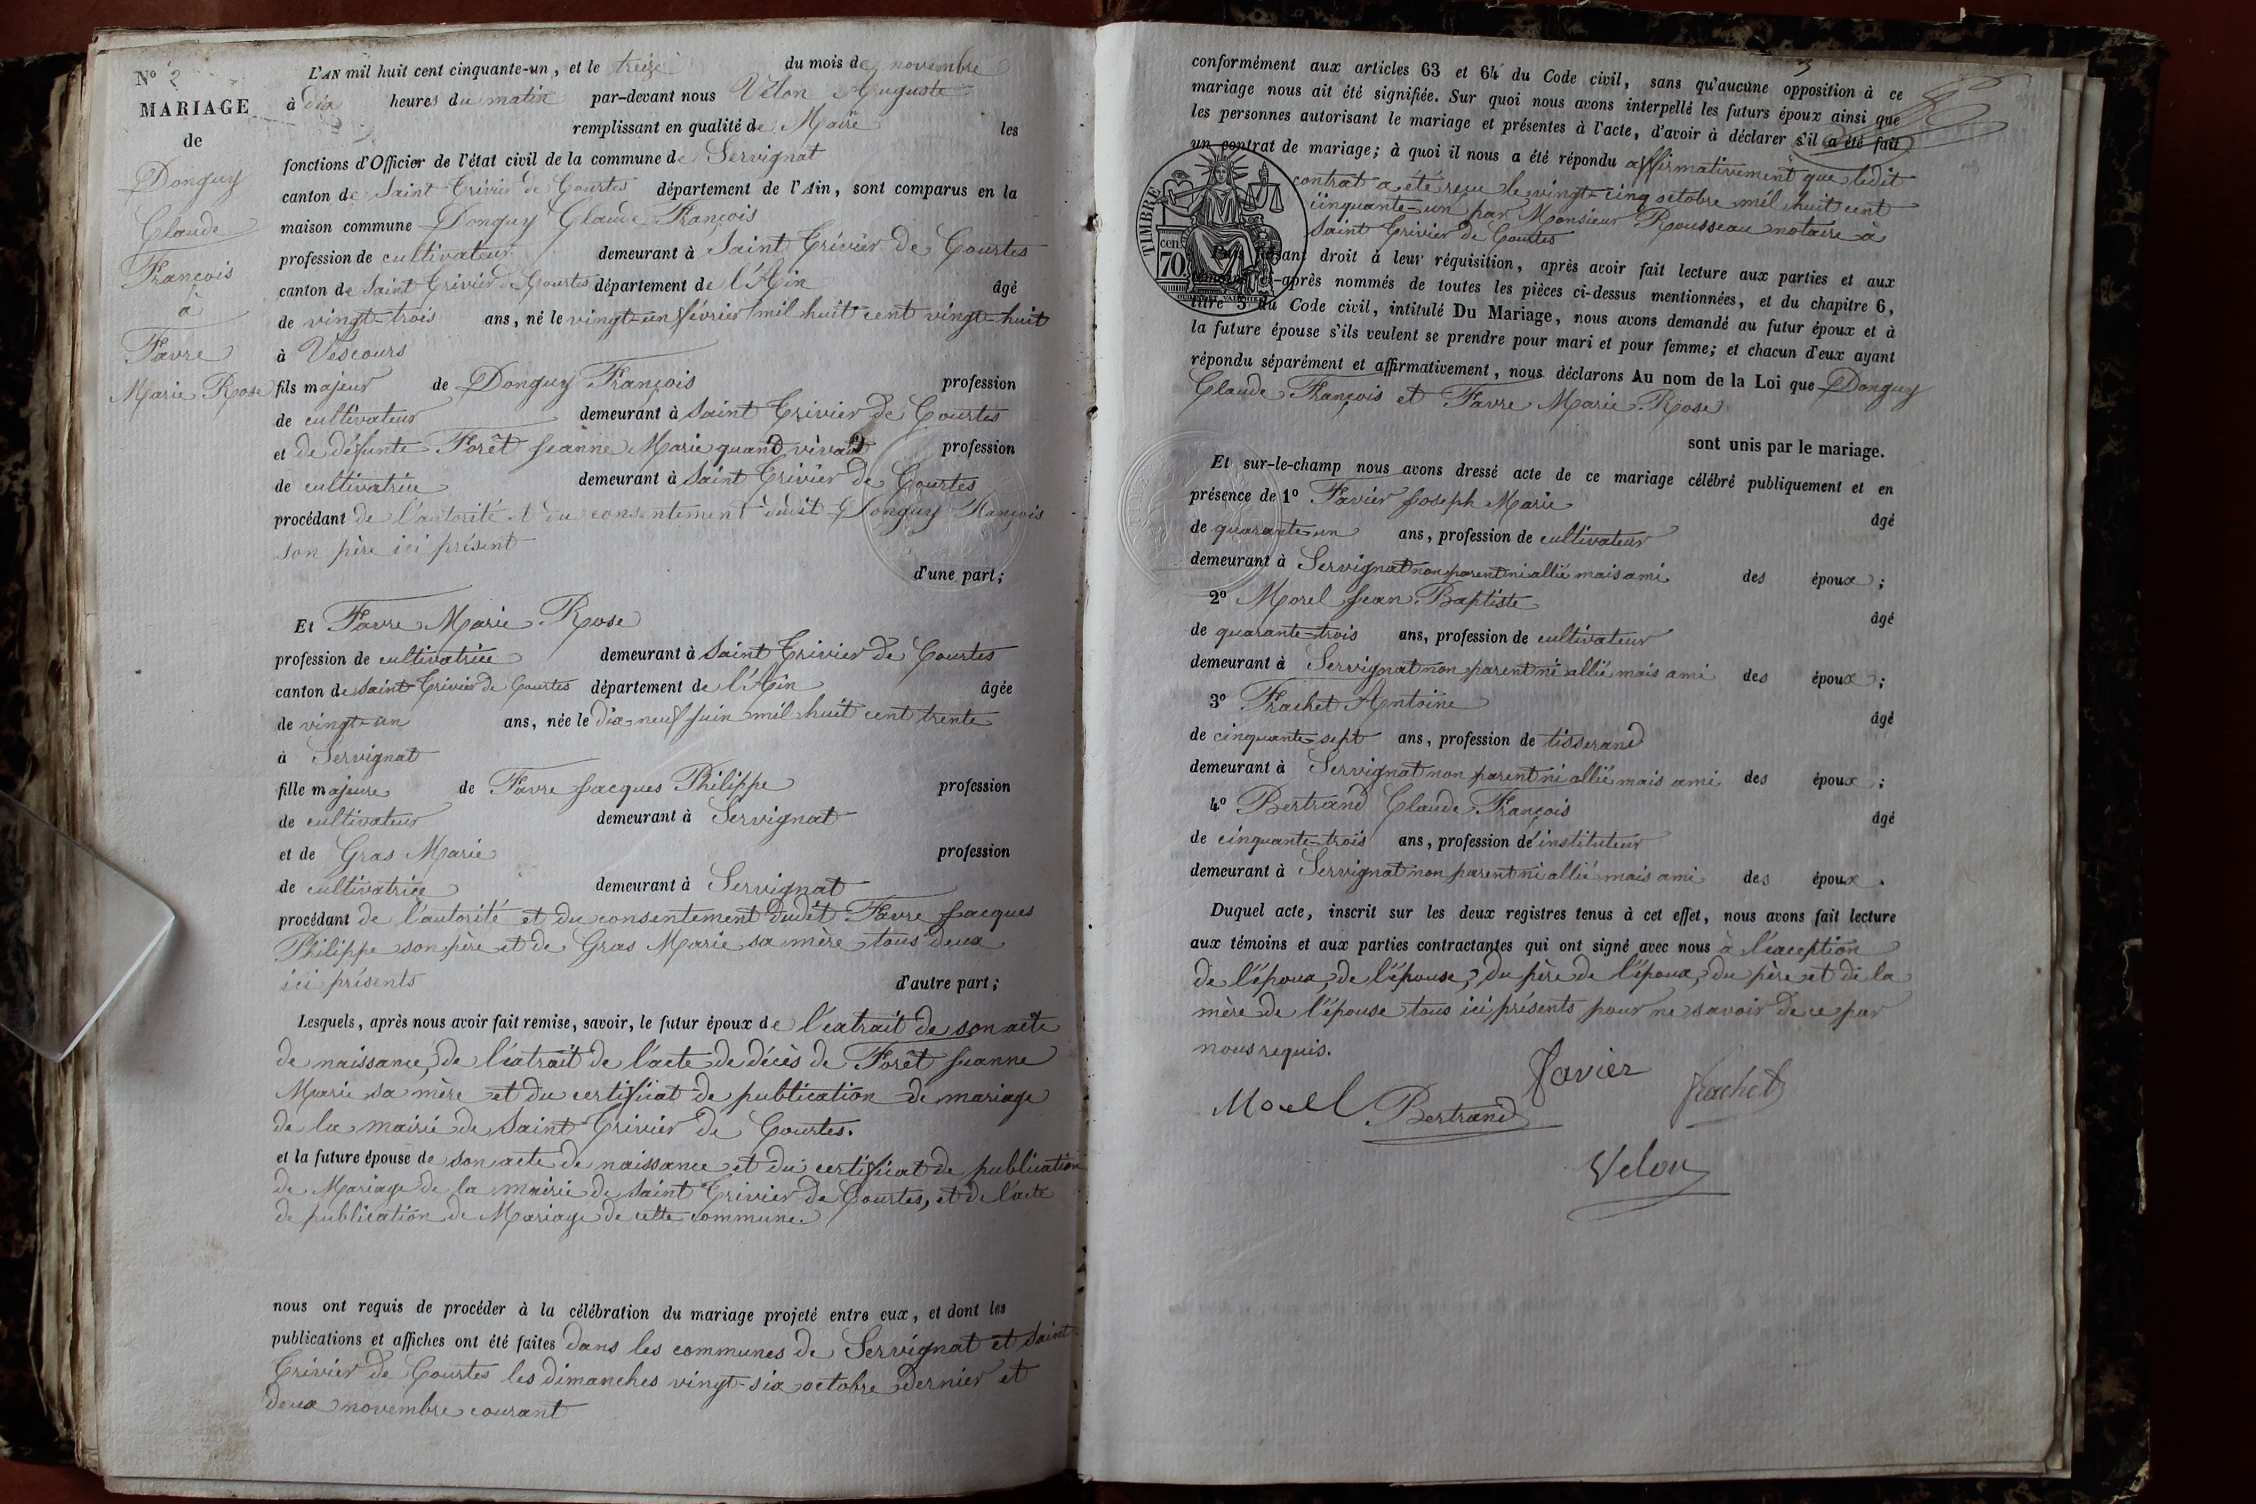 N° 2
MARIAGE
de
Donguy
Claude
François
à
Favre
Marie Rose
L'AN mil huit cent cinquante-un, et le treize du mois de novembre
à dix heures du matin par-devant nous Vélon Auguste
remplissant en qualité de Maire les
fonctions d'Officier de l'état civil de la commune de Servignat
canton de Saint Trivier de Courtes département de l'Ain, sont comparus en la
maison commune Donguy Claude François
profession de cultivateur demeurant à Saint Trivier de Courtes
canton de Saint Trivier de Courtes département de l'Ain âgé
de vingt-trois ans, né le vingt-un février mil huit cent vingt-huit
à Vescours
fils majeur de Donguy François profession
de cultivateur demeurant à Saint Trivier de Courtes
et de défunte Forêt Jeanne Marie quand vivait profession
de cultivatrice demeurant à Saint Trivier de Courtes
procédant de l'autorité et du consentement dudit Donguy François
son père ici présent
d'une part;
Et Favre Marie Rose
profession de cultivatrice demeurant à Saint Trivier de Courtes
canton de Saint Trivier de Courtes département de l'Ain âgée
de vingt-un ans, née le dix neuf Juin mil huit cent trente
à Servignat
fille majeure de Favre Jacques Philippe profession
de cultivateur demeurant à Servignat
et de Gras Marie profession
de cultivatrice demeurant à Servignat
procédant de l'autorité et du consentement dudit Favre Jacques
Philippe son père et de Gras Marie sa mère tous deux
ici présents d'autre part;
Lesquels, après nous avoir fait remise, savoir, le futur époux de l'extrait de son acte
de naissance, de l'extrait de l'acte de décès de Forêt Jeanne
Marie sa mère et du certificat de publication de mariage
de la mairie de Saint Trivier de Courtes.
et la future épouse de son acte de naissance et du certificat de publication
de Mariage de la mairie de Saint Trivier de Courtes, et de l'acte
de publication de Mariage de cette commune.
nous ont requis de procéder à la célébration du mariage projeté entre eux, et dont les
publications et affiches ont été faites dans les communes de Servignat et Saint
Trivier de Courtes les dimanches vingt-six octobre dernier et
deux novembre courant
3
conformément aux articles 63 et 64 du Code civil, sans qu'aucune opposition à ce
mariage nous ait été signifiée. Sur quoi nous avons interpellé les futurs époux ainsi que
les personnes autorisant le mariage et présentes à l'acte, d'avoir à déclarer s'il a été fait
un contrat de mariage; à quoi il nous a été répondu affirmativement que ledit
contrat a été reçu le vingt-cinq octobre mil huit cent
cinquante-un par Monsieur Rousseau notaire à
Saint Trivier de Courtes
TIMBRE
cen. 70
droit à leur réquisition, après avoir fait lecture aux parties et aux
-après nommés de toutes les pièces ci-dessus mentionnées, et du chapitre 6,
titre 5 du Code civil, intitulé Du Mariage, nous avons demandé au futur époux et à
la future épouse s'ils veulent se prendre pour mari et pour femme; et chacun d'eux ayant
répondu séparément et affirmativement, nous déclarons Au nom de la Loi que Donguy
Claude François et Favre Marie Rose
sont unis par le mariage.
Et sur-le-champ nous avons dressé acte de ce mariage célébré publiquement et en
présence de 1° Favier Joseph Marie âgé
de quarante-un ans, profession de cultivateur
demeurant à Servignat non parent ni allié mais ami des époux;
2° Morel Jean Baptiste âgé
de quarante-trois ans, profession de cultivateur
demeurant à Servignat non parent ni allié mais ami des époux;
3° Frachet Antoine âgé
de cinquante-sept ans, profession de tisserand
demeurant à Servignat non parent ni allié mais ami des époux;
4° Bertrand Claude François âgé
de cinquante-trois ans, profession de instituteur
demeurant à Servignat non parent ni allié mais ami des époux.
Duquel acte, inscrit sur les deux registres tenus à cet effet, nous avons fait lecture
aux témoins et aux parties contractantes qui ont signé avec nous à l'exception
de l'époux, de l'épouse, du père de l'époux, du père et de la
mère de l'épouse tous ici présents pour ne savoir de ce par
nous requis.
Favier
Frachet
Morel
Bertrand
Velon